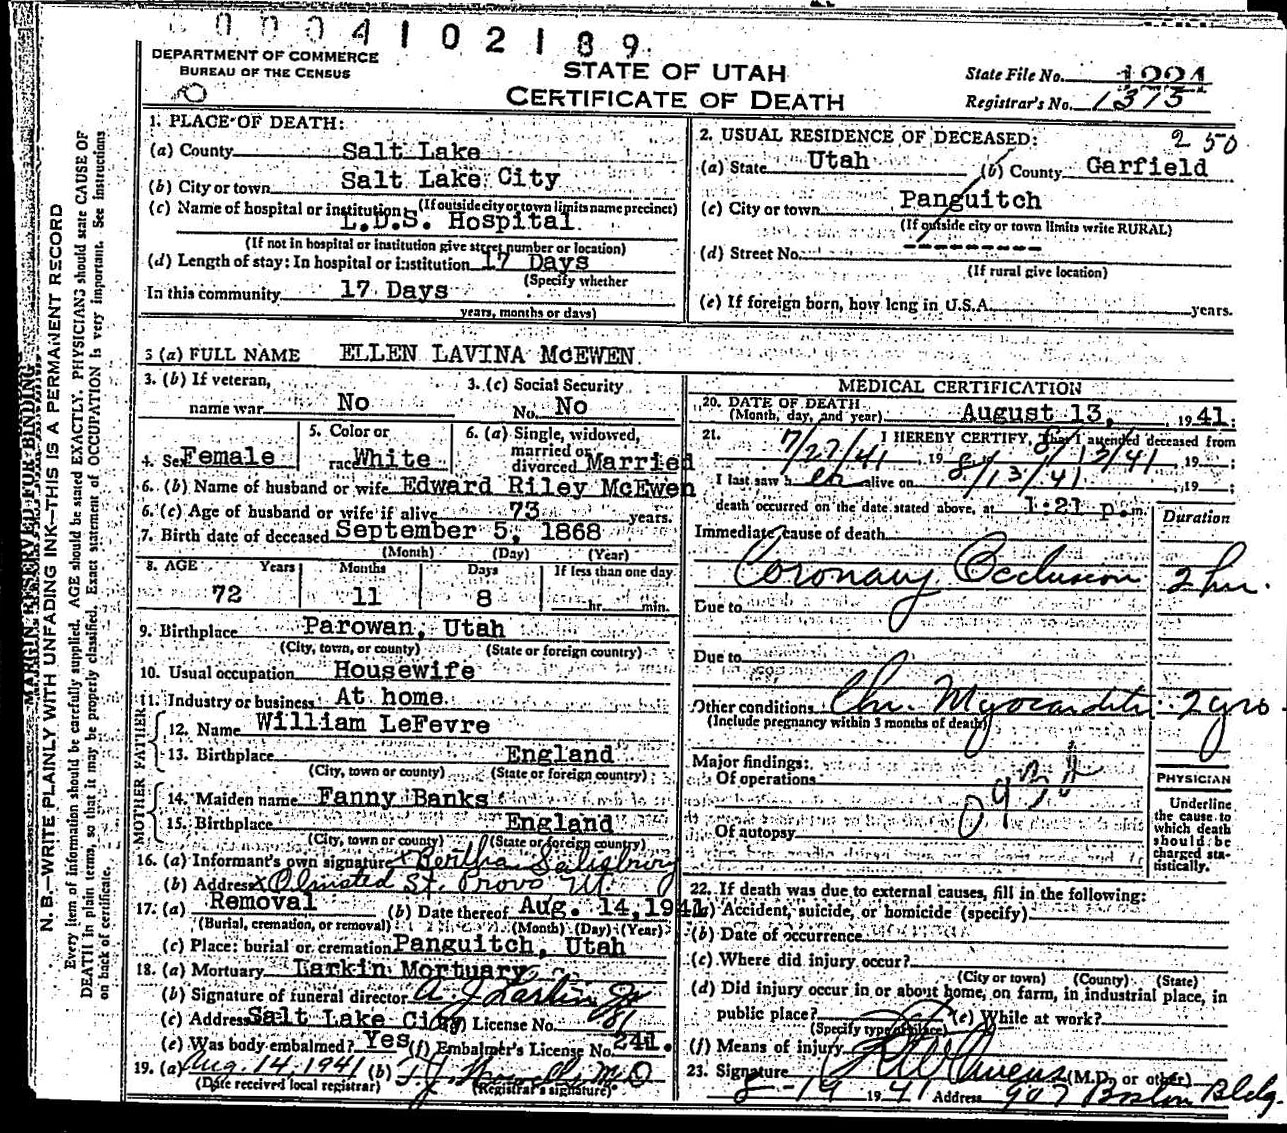 0004102189
DEPARTMENT OF COMMERCE
BUREAU OF THE CENSUS
STATE OF UTAH
CERTIFICATE OF DEATH
State File No. 1224
Registrar's No. 1373
MARGIN RESERVED FOR BINDING
N. B.—WRITE PLAINLY WITH UNFADING INK—THIS IS A PERMANENT RECORD
Every item of information should be carefully supplied. AGE should be stated EXACTLY. PHYSICIANS should state CAUSE OF
DEATH in plain terms, so that it may be properly classified. Exact statement of OCCUPATION is very important. See instructions
on back of certificate.
1. PLACE OF DEATH:
(a) County Salt Lake
(b) City or town Salt Lake City
(c) Name of hospital or institution: (If outside city or town limits name precinct)
L.D.S. Hospital
(If not in hospital or institution give street number or location)
(d) Length of stay: In hospital or institution 17 Days
(Specify whether
In this community 17 Days
years, months or days)
2. USUAL RESIDENCE OF DECEASED: 250
(a) State Utah (b) County Garfield
(c) City or town Panguitch
(If outside city or town limits write RURAL)
(d) Street No. ---------
(If rural give location)
(e) If foreign born, how long in U.S.A. years.
3 (a) FULL NAME ELLEN LAVINA McEWEN
3. (b) If veteran,
name war No
3. (c) Social Security
No. No
4. Sex Female
5. Color or
race White
6. (a) Single, widowed,
married or
divorced Married
6. (b) Name of husband or wife Edward Riley McEwen
6. (c) Age of husband or wife if alive 73 years.
7. Birth date of deceased September 5, 1868
(Month) (Day) (Year)
8. AGE Years Months Days If less than one day
72 11 8 hr. min.
9. Birthplace Parowan, Utah
(City, town, or county) (State or foreign country)
10. Usual occupation Housewife
11. Industry or business At home
FATHER
12. Name William LeFevre
13. Birthplace England
(City, town or county) (State or foreign country)
MOTHER
14. Maiden name Fanny Banks
15. Birthplace England
(City, town or county) (State or foreign country)
16. (a) Informant's own signature x Bertha Salisbury
(b) Address x Olmsted St. Provo Ut.
17. (a) Removal (b) Date thereof Aug. 14, 1941
(Burial, cremation, or removal) (Month) (Day) (Year)
(c) Place: burial or cremation Panguitch, Utah
18. (a) Mortuary Larkin Mortuary
(b) Signature of funeral director A J Larkin Jr
(c) Address Salt Lake City License No. 81
(e) Was body embalmed? Yes (f) Embalmer's License No. 241.
19. (a) Aug. 14, 1941 (b) M.D
(Date received local registrar) (Registrar's signature)
MEDICAL CERTIFICATION
20. DATE OF DEATH
(Month, day, and year) August 13, 1941.
21. I HEREBY CERTIFY, That I attended deceased from
7/27/41, 19 8/13/41, 19 ;
I last saw her alive on 8/13/41, 19 ;
death occurred on the date stated above, at 1:21 p. m.
Duration
Immediate cause of death
Coronary Occlusion 2 hr.
Due to
Due to
Other conditions Chr. Myocarditis 2 yrs
(Include pregnancy within 3 months of death)
Major findings:
Of operations
Of autopsy
PHYSICIAN
Underline
the cause to
which death
should be
charged sta-
tistically.
22. If death was due to external causes, fill in the following:
(a) Accident, suicide, or homicide (specify)
(b) Date of occurrence
(c) Where did injury occur?
(City or town) (County) (State)
(d) Did injury occur in or about home, on farm, in industrial place, in
public place? (e) While at work?
(Specify type of place)
(f) Means of injury
23. Signature Owens (M.D. or other)
8-19 1941 Address 907 Boston Bldg.